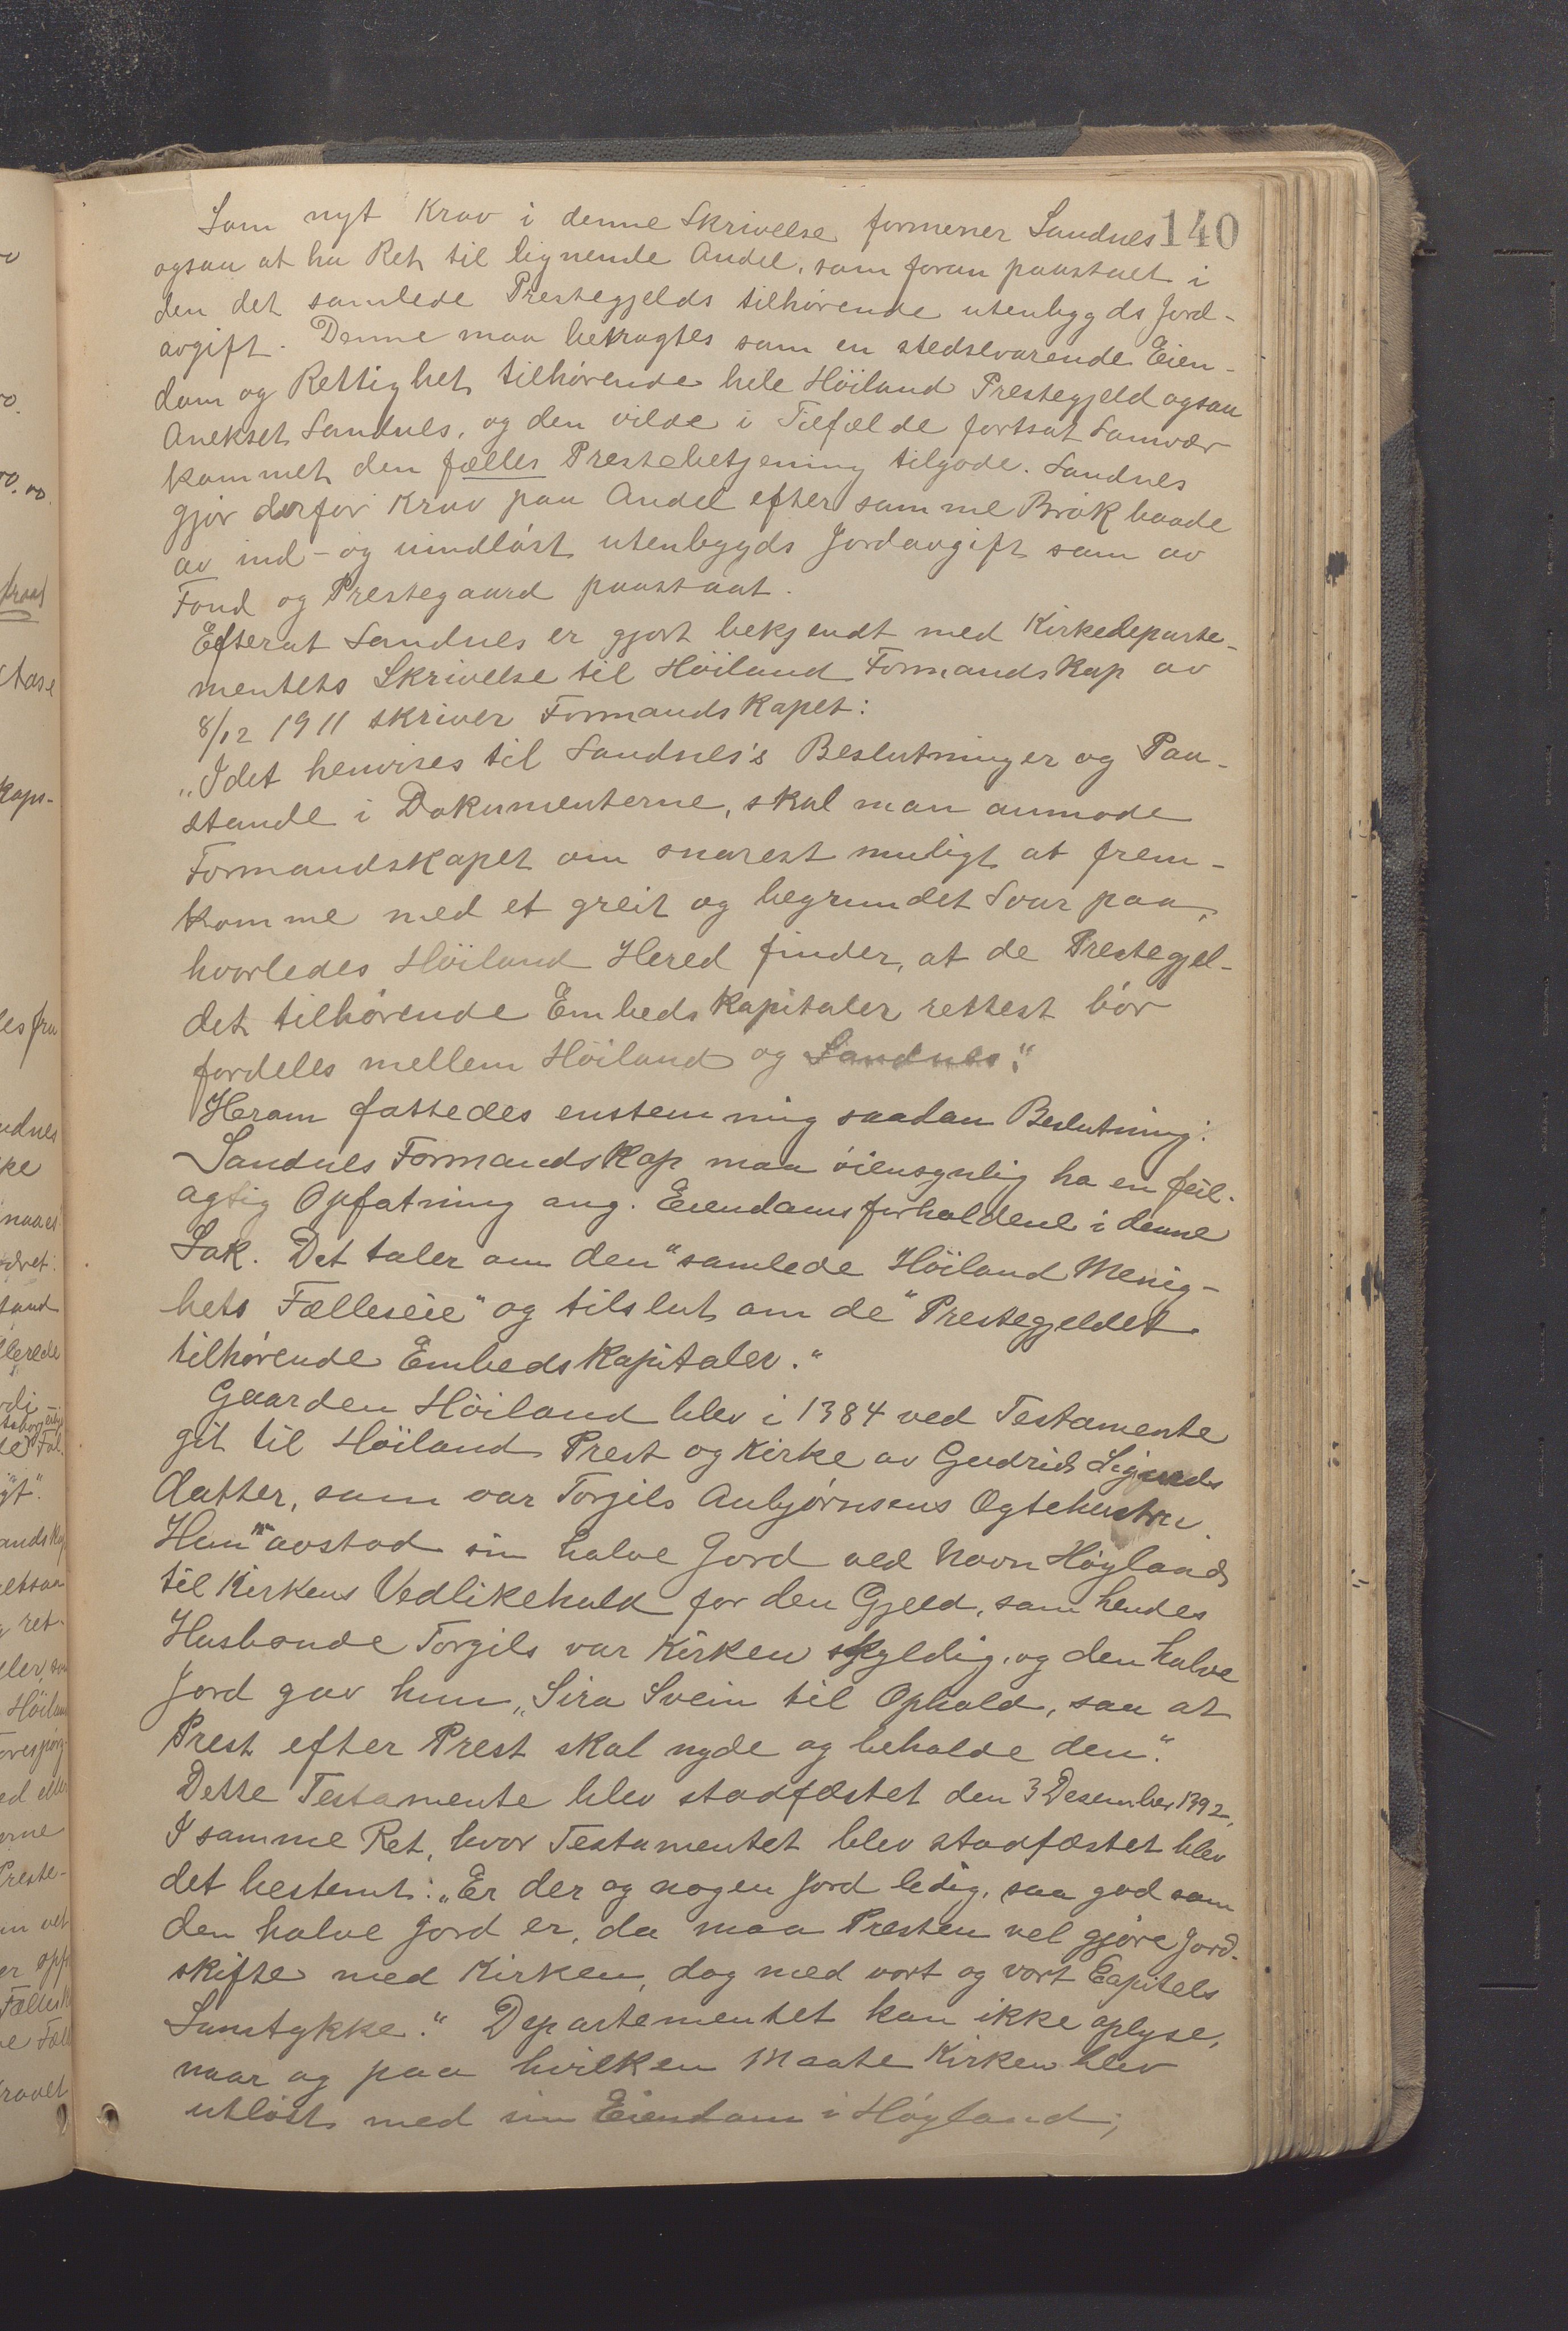 140
Som nyt Krav i denne Skrivelse formener Sandnes
ogsaa at ha Ret til lignende Andel, som foran paastaet i
den det samlede Prestegjelds tilhørende utenbygds Jord-
avgift. Denne maa betragtes som en stedsevarende Eien-
dom og Rettighet tilhørende hele Höiland Prestegjeld ogsaa
Anekset Sandnes, og den vilde i Tilfælde fortsat Samvær
kommet den fælles Prestebetjening tilgode. Sandnes
gjør derfor Krav paa Andel efter samme Brøk baade
av ind- og uindløst utenbygds Jordavgift som av
Fond og Prestegaard paastaat.
Efterat Sandnes er gjort bekjendt med Kirkedeparte-
mentets Skrivelse til Höiland Formandskap av
8/12 1911 skriver Formandskapet:
"Idet henvises til Sandnes's Beslutninger og Paa-
stande i Dokumenterne, skal man anmode
Formandskapet om snarest muligt at frem-
komme med et greit og begrundet Svar paa,
hvorledes Höiland Hered finder, at de Prestegjel-
det tilhørende Embedskapitaler rettest bør
fordeles mellem Höiland og Sandnes."
Herom fattedes enstemmig saadan Beslutning:
Sandnes Formandskap maa öiensynlig ha en feil-
agtig Opfatning ang. Eiendomsforholdene i denne
Sak. Det taler om den "samlede Höiland Menig-
hets Fælleseie" og tilslut om de "Prestegjeldet
tilhørende Embedskapitaler."
Gaarden Höiland blev i 1384 ved Testamente
git til Höiland Prest og Kirke av Gudrid Sigurds
datter, som var Torgils Anbjørnsens Ogtehustru.
Hun "avstod sin halve Jord ved Navn Høyland
til Kirkens Vedlikehold for den Gjeld, som hendes
Husbonde Torgils var Kirken skyldig, og den halve
Jord gav hun "Sira Svein til Ophold, saa at
Prest efter Prest skal nyde og beholde den."
Dette Testamente blev stadfæstet den 3 Desember 1392,
I samme Ret, hvor Testamentet blev stadfæstet blev
det bestemt: "Er der og nogen Jord ledig, saa god som
den halve Jord er, da maa Presten vel gjøre Jord-
skifte med Kirken, dog med vort og vort Capitels
Samtykke." Departementet kan ikke oplyse,
naar og paa hvilken Maate Kirken blev
utløst med sin Eiendom i Høyland;